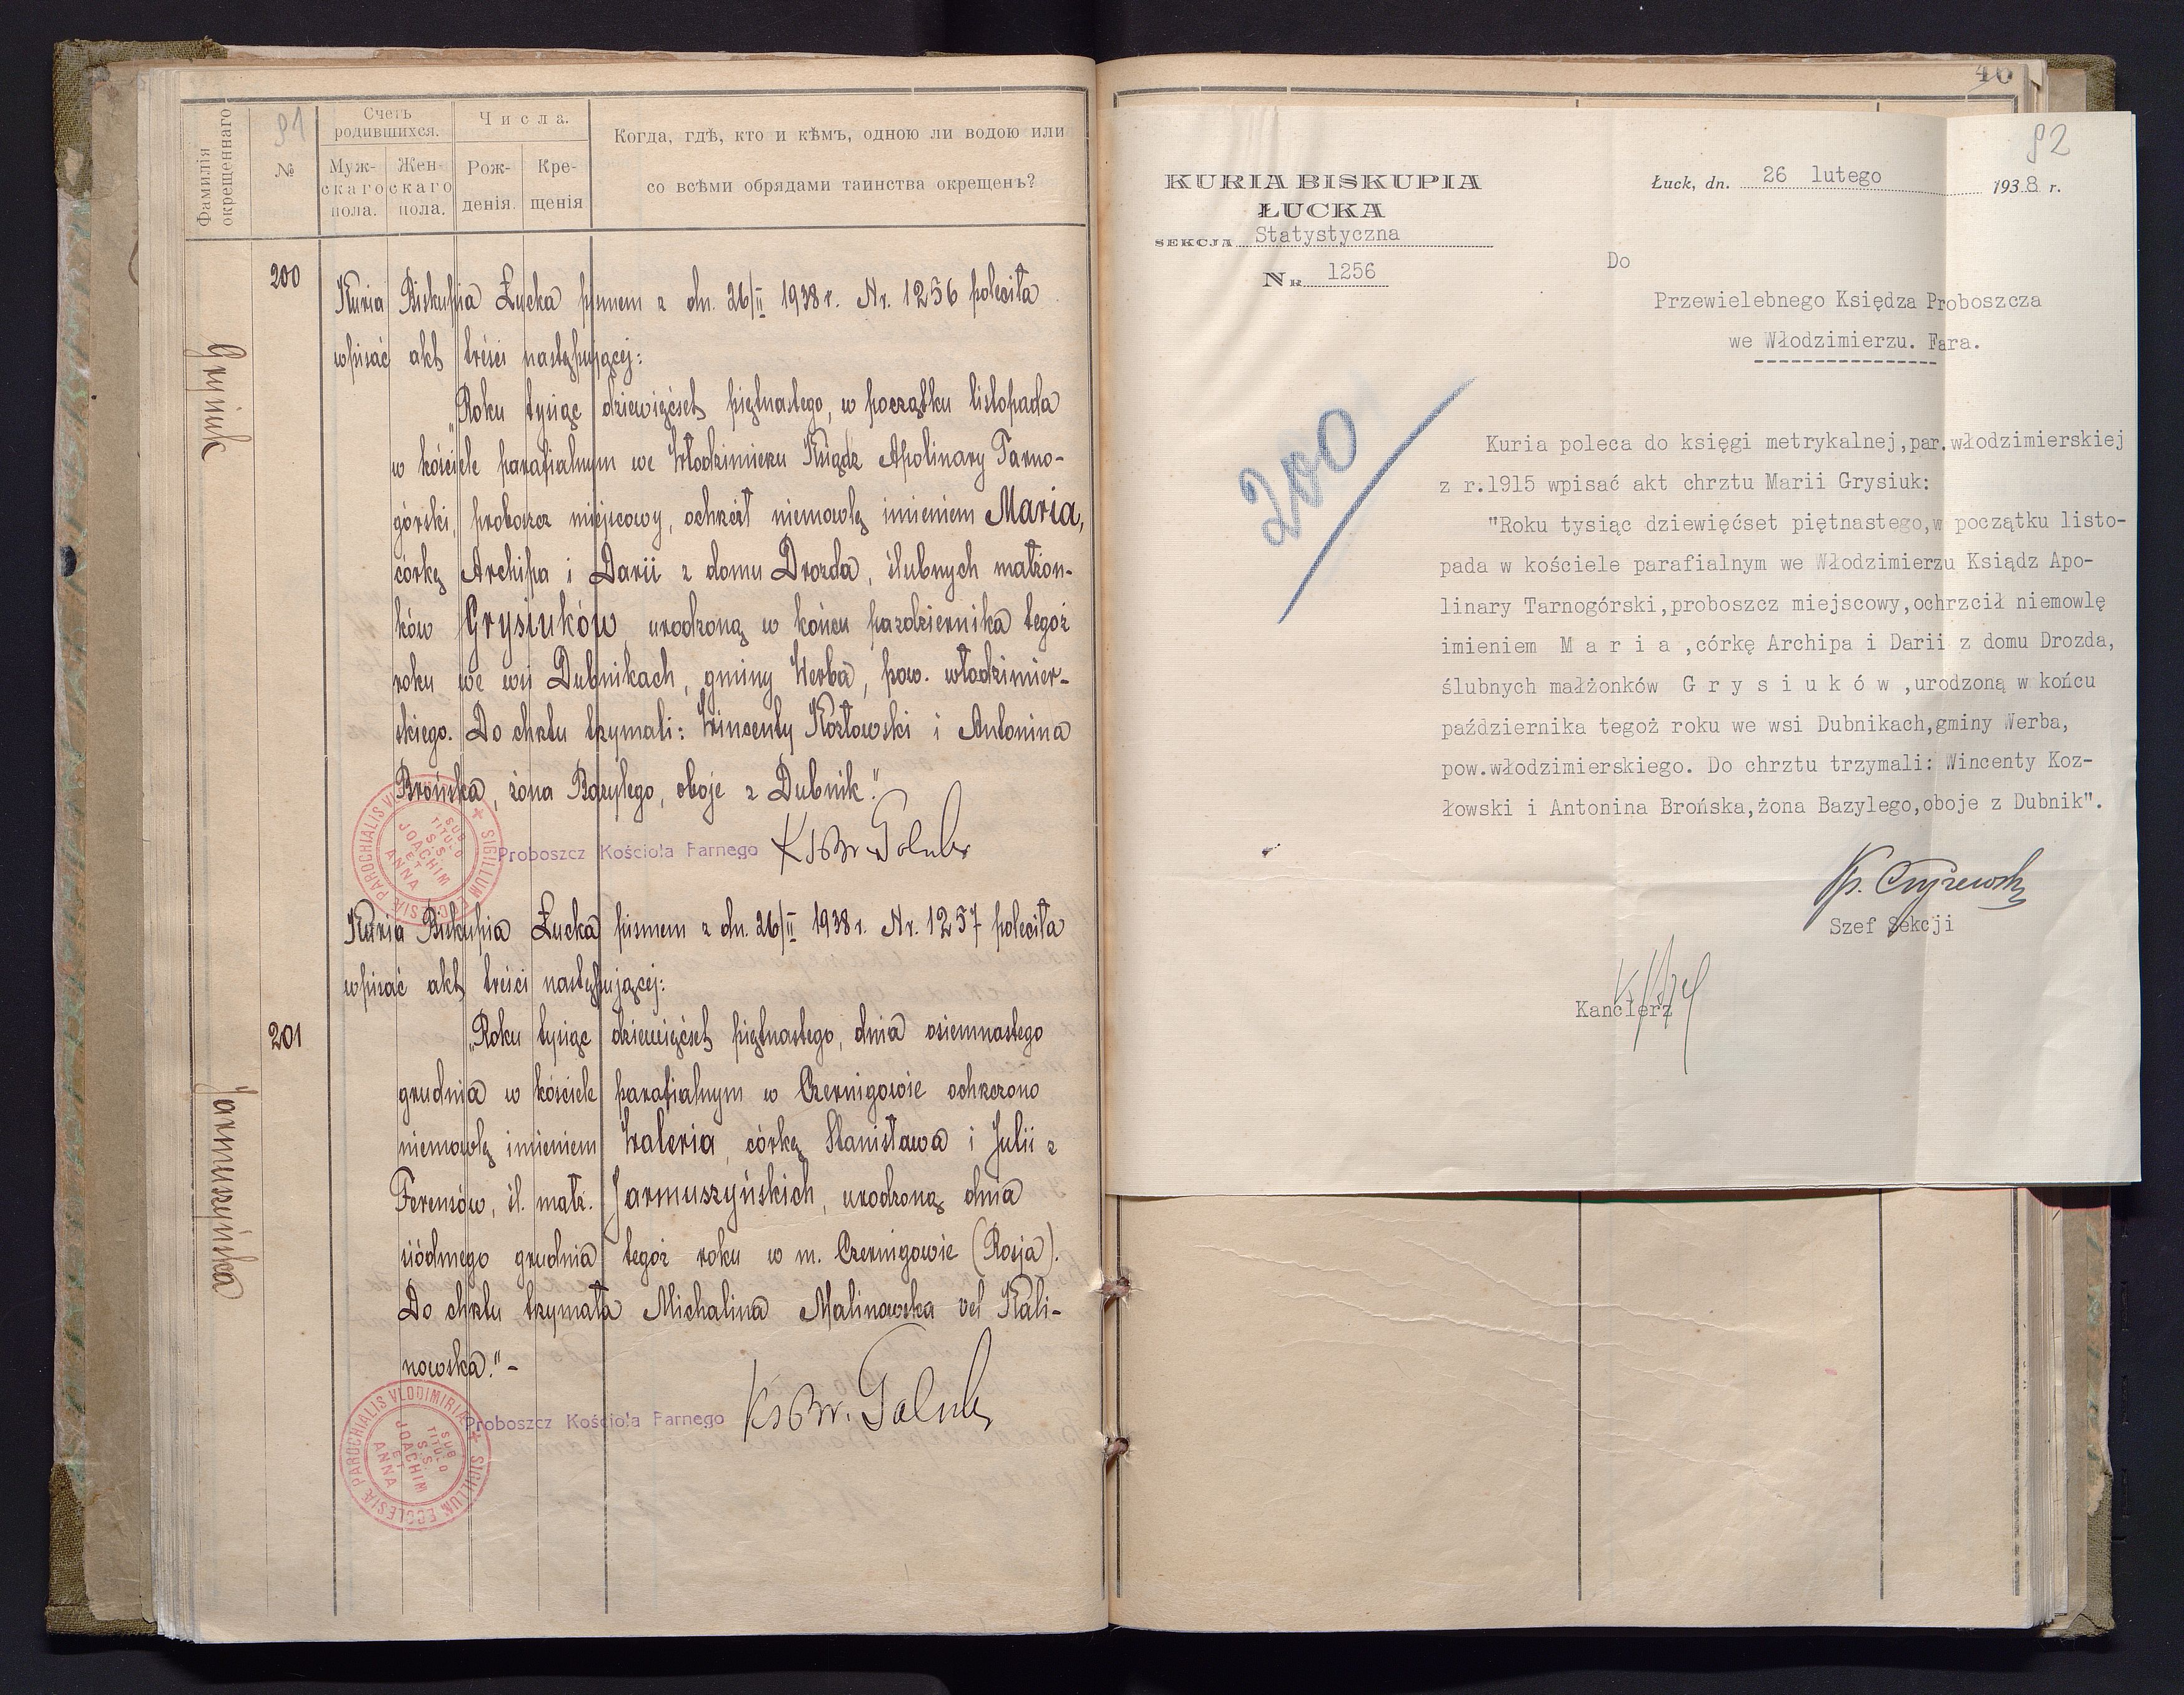 Фамилія окрещеннаго
91
№
Счетъ родившихся.
Муж-скаго пола.
Жен-скаго пола.
Числа.
Рож-денія.
Кре-щенія
Когда, гдѣ, кто и кѣмъ, одною ли водою или
со всѣми обрядами таинства окрещенъ?
200
Grysiuk
Kuria Biskupia Łucka pismem z dn. 26/II 1938 r. Nr. 1256 poleciła
wpisać akt treści następującej:
„Roku tysiąc dziewięćset piętnastego, w początku listopada
w kościele parafialnym we Włodzimierzu Ksiądz Apolinary Tarno-
górski, proboszcz miejscowy, ochrzcił niemowlę imieniem Maria,
córkę Archipa i Darii z domu Drozda, ślubnych małżon-
ków Grysiuków, urodzoną w końcu października tegoż
roku we wsi Dubnikach, gminy Werba, pow. włodzimier-
skiego. Do chrztu trzymali: Wincenty Kozłowski i Antonina
Brońska, żona Bazylego, oboje z Dubnik".
SIGILLUM ECCLESIÆ PAROCHIALIS
SUB TITULO S.S. JOACHIM ET ANNA
Proboszcz Kościoła Farnego
Kuria Biskupia Łucka pismem z dn. 26/II 1938 r. Nr. 1257 poleciła
wpisać akt treści następującej:
201
Jarmuszyńska
„Roku tysiąc dziewięćset piętnastego, dnia osiemnastego
grudnia w kościele parafialnym w Czernigowie ochrzczono
niemowlę imieniem Waleria, córkę Stanisława i Julii z
Ferensów, śl. małż. Jarmuszyńskich, urodzoną dnia
siódmego grudnia tegoż roku w m. Czernigowie (Rosja).
Do chrztu trzymała Michalina Malinowska vel Kali-
nowska." -
SIGILLUM ECCLESIÆ PAROCHIALIS VLODIMIRIÆ
SUB TITULO S.S. JOACHIM ET ANNA
Proboszcz Kościoła Farnego
46
92
KURIA BISKUPIA
ŁUCKA
SEKCJA Statystyczna
Nr 1256
Łuck, dn. 26 lutego 1938 r.
Do
Przewielebnego Księdza Proboszcza
we Włodzimierzu. Fara.
200
Kuria poleca do księgi metrykalnej,par.włodzimierskiej
z r.1915 wpisać akt chrztu Marii Grysiuk:
"Roku tysiąc dziewięćset piętnastego,w początku listo-
pada w kościele parafialnym we Włodzimierzu Ksiądz Apo-
linary Tarnogórski,proboszcz miejscowy,ochrzcił niemowlę
imieniem M a r i a ,córkę Archipa i Darii z domu Drozda,
ślubnych małżonków G r y s i u k ó w ,urodzoną w końcu
października tegoż roku we wsi Dubnikach,gminy Werba,
pow.włodzimierskiego. Do chrztu trzymali: Wincenty Koz-
łowski i Antonina Brońska,żona Bazylego,oboje z Dubnik".
Szef Sekcji
Kanclerz